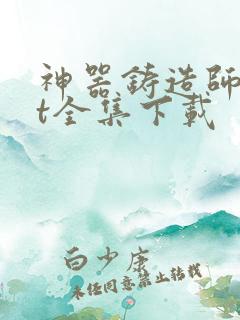 神器铸造師
t全集下載
白少康
未经同意禁止转载